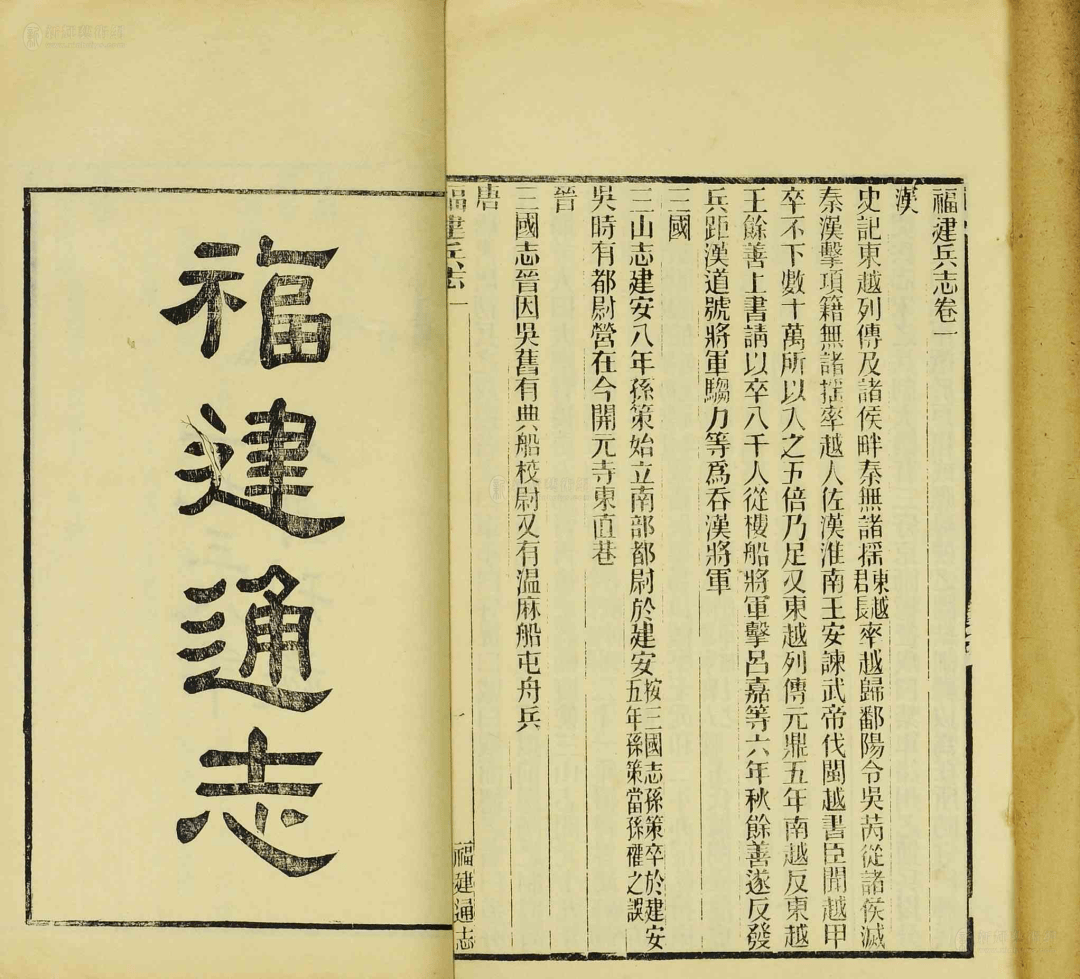 福建兵志卷一
漢
史記東越列傳及諸侯畔秦無諸搖東越君長率越歸鄱陽令吳芮從諸侯滅
秦漢擊項籍無諸搖率越人佐漢淮南王安諫武帝伐閩越書臣聞越甲
卒不下數十萬所以入之五倍乃足又東越列傳元鼎五年南越反東越
王餘善上書請以卒八千人從樓船將軍擊呂嘉等六年秋餘善遂反發
兵距漢道號將軍騶力等為吞漢將軍
三國
三山志建安八年孫策始立南部都尉於建安按三國志孫策卒於建安五年孫策當孫權之誤
吳時有都尉營在今開元寺東直巷
晉
三國志晉因吳舊有典船校尉又有溫麻船屯舟兵
唐
福建兵志一
福建通志
福建通志